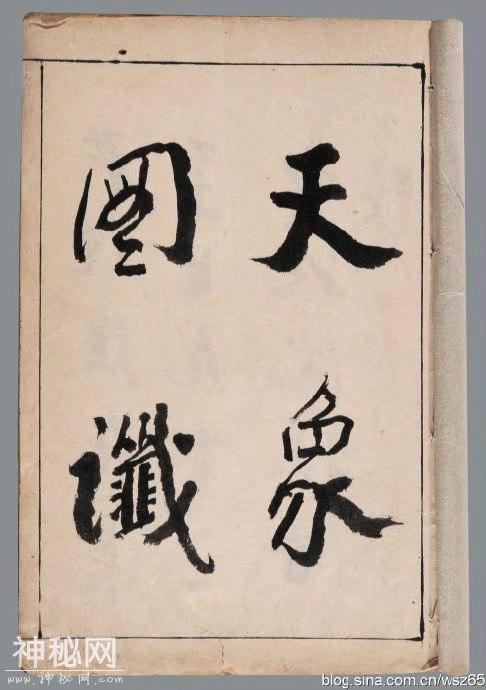 天象
圖讖
神秘网
www.神秘网.com
blog.sina.com.cn/wsz65